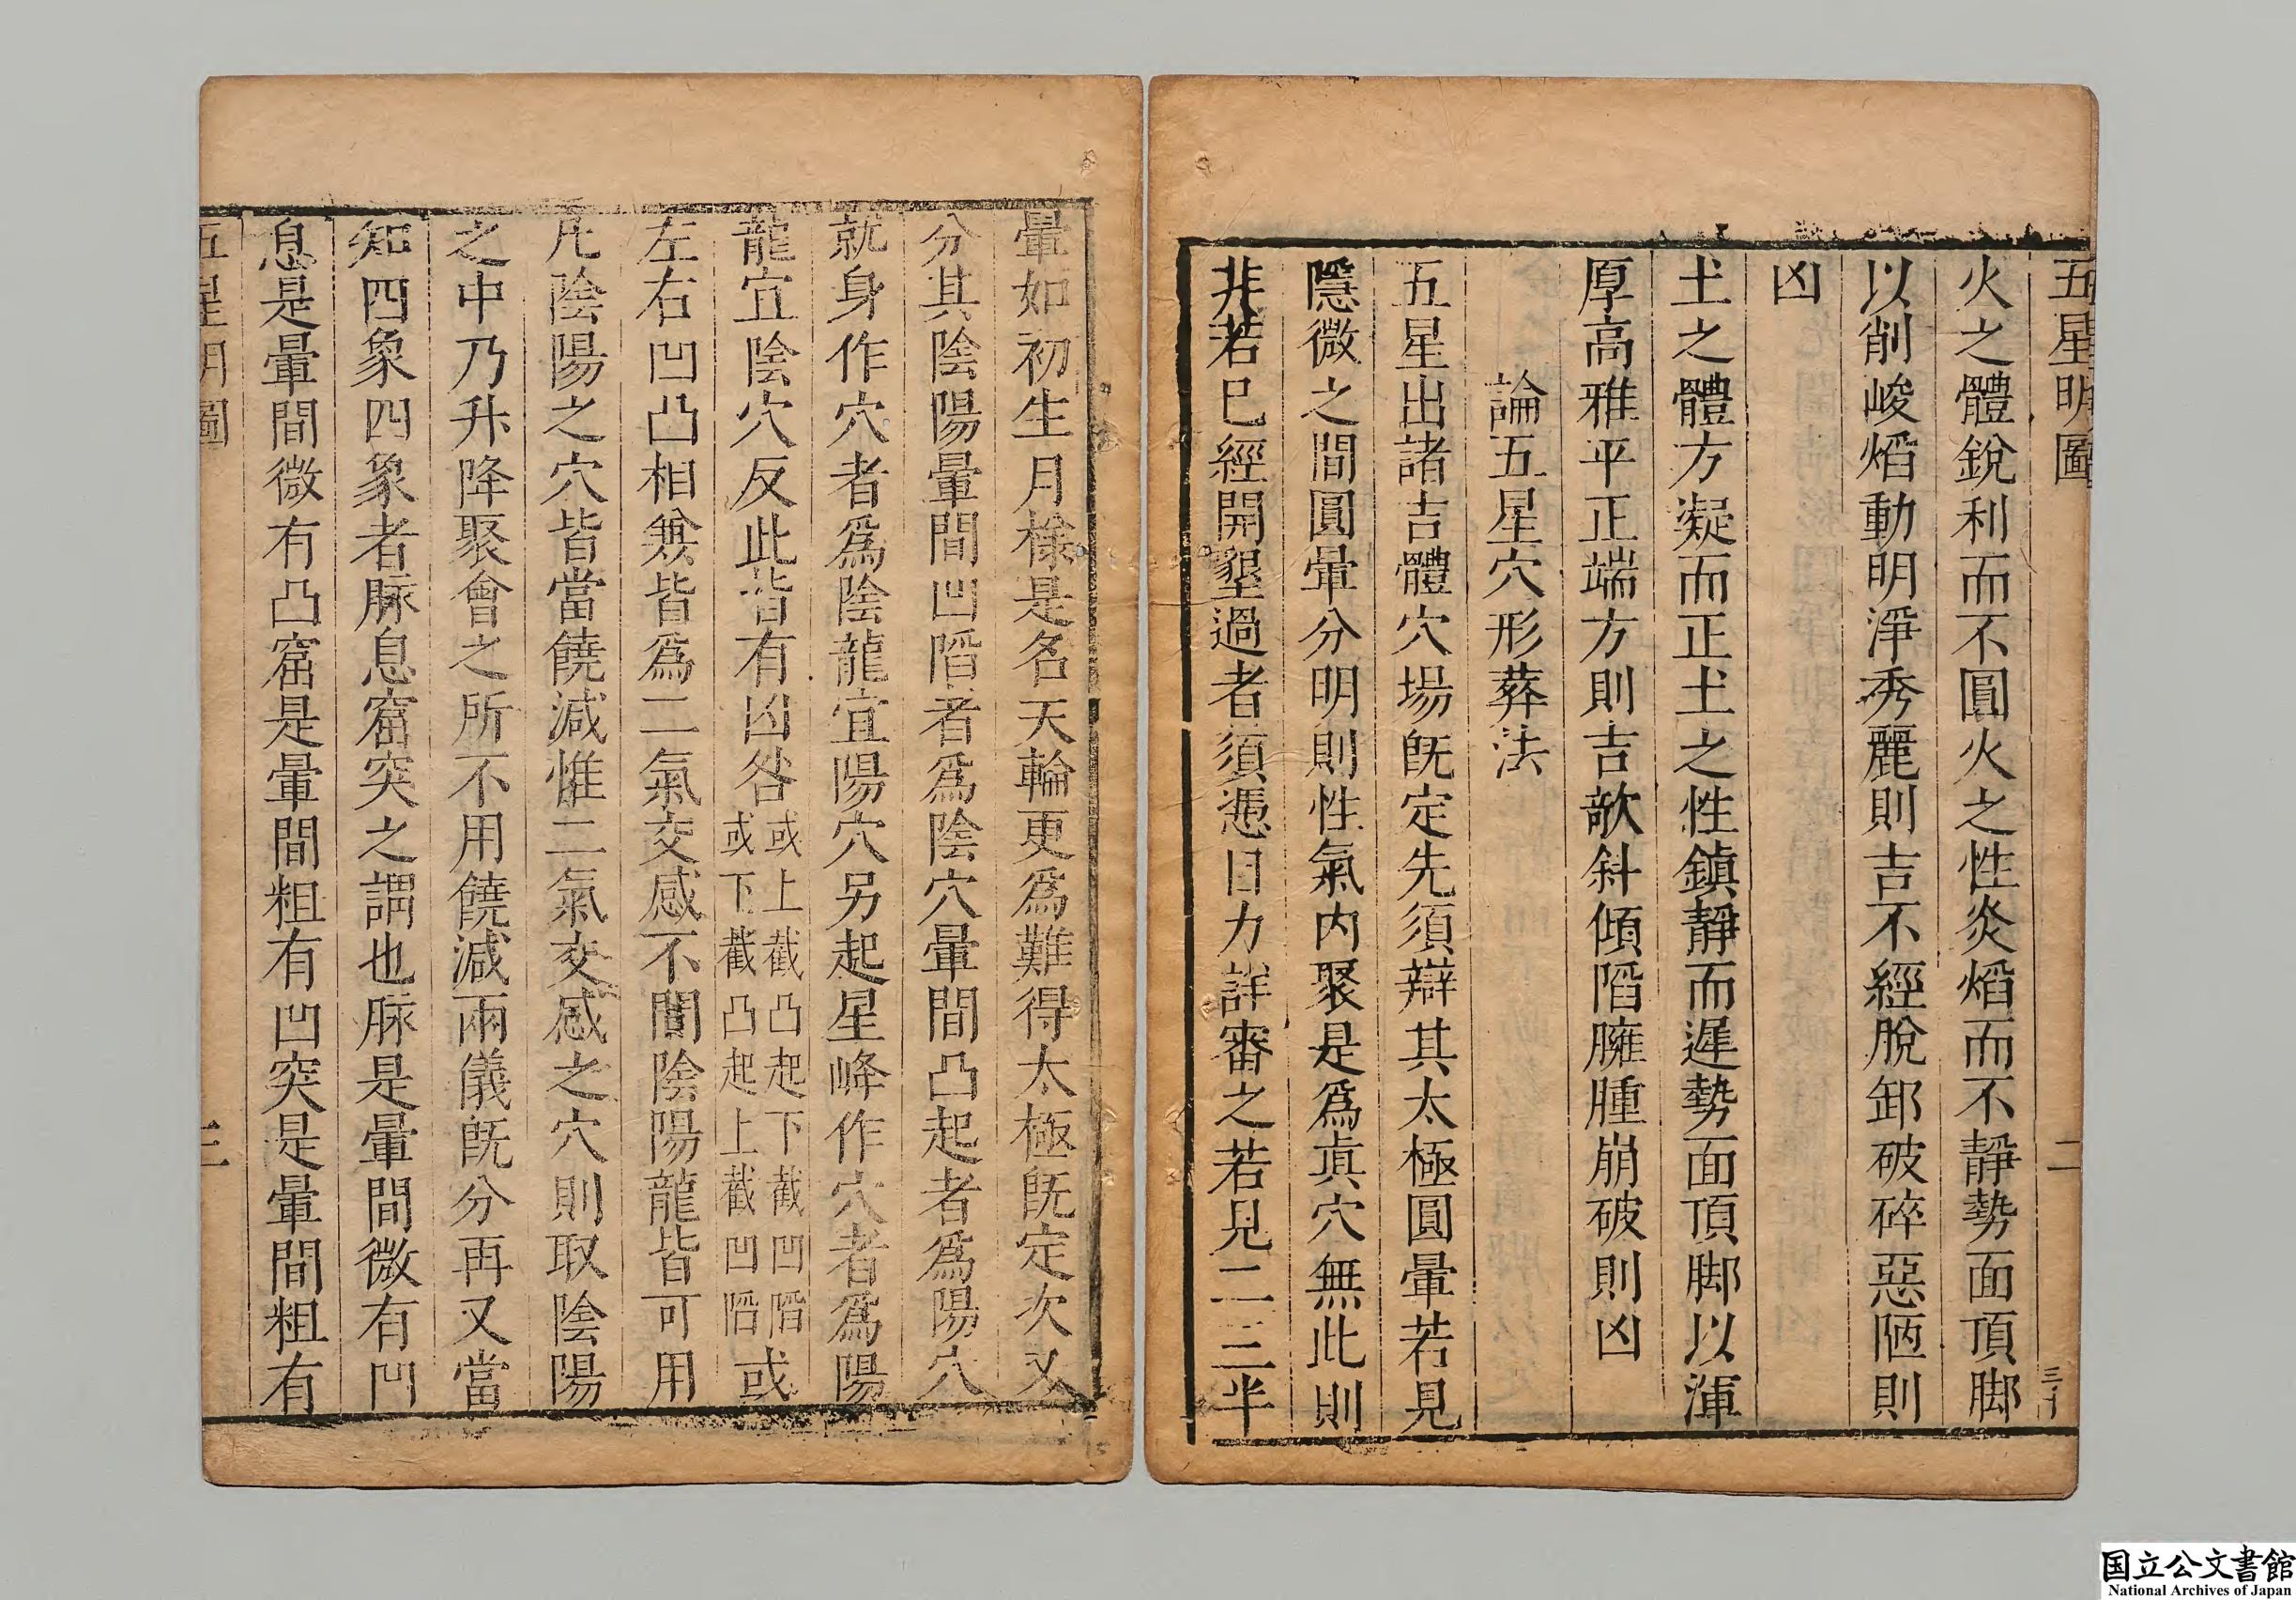 五星明圖 二
火之體銳利而不圓火之性炎熖而不靜勢面頂脚
以削峻熖動明淨秀麗則吉不經脫卸破碎惡陋則
凶
土之體方凝而正土之性鎮靜而遲勢面頂脚以渾
厚高雅平正端方則吉欹斜傾陷臃腫崩破則凶
論五星穴形葬法
五星出諸吉體穴場旣定先須辯其太極圓暈若見
隱微之間圓暈分明則性氣内聚是爲眞穴無此則
非若已經開墾過者須憑目力詳審之若見二三半
暈如初生月樣是名天輪更爲難得太極旣定次又
分其陰陽暈間凹陷者爲陰穴暈間凸起者爲陽穴
就身作穴者爲陰龍宜陽穴另起星峰作穴者爲陽
龍宜陰穴反此皆有凶咎或上截凸起下截凹陷或下截凸起上截凹陷或
左右凹凸相兼皆爲二氣交感不問陰陽龍皆可用
凡陰陽之穴皆當饒減惟二氣交感之穴則取陰陽
之中乃升降聚會之所不用饒減兩儀旣分再又當
知四象四象者脉息窟突之謂也脉是暈間微有凹
息是暈間微有凸窟是暈間粗有凹突是暈間粗有
五星明圖 三
国立公文書館
National Archives of Japan